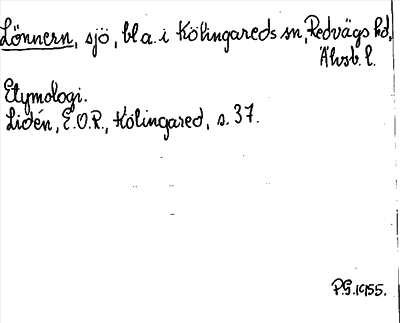 Lönnern, sjö, bl a. i Kölingareds sn, Redvägs hd,
Älvsb. l.
Etymologi.
Lidén, E.O.R., Kölingared, s. 37.
P.G. 1955.